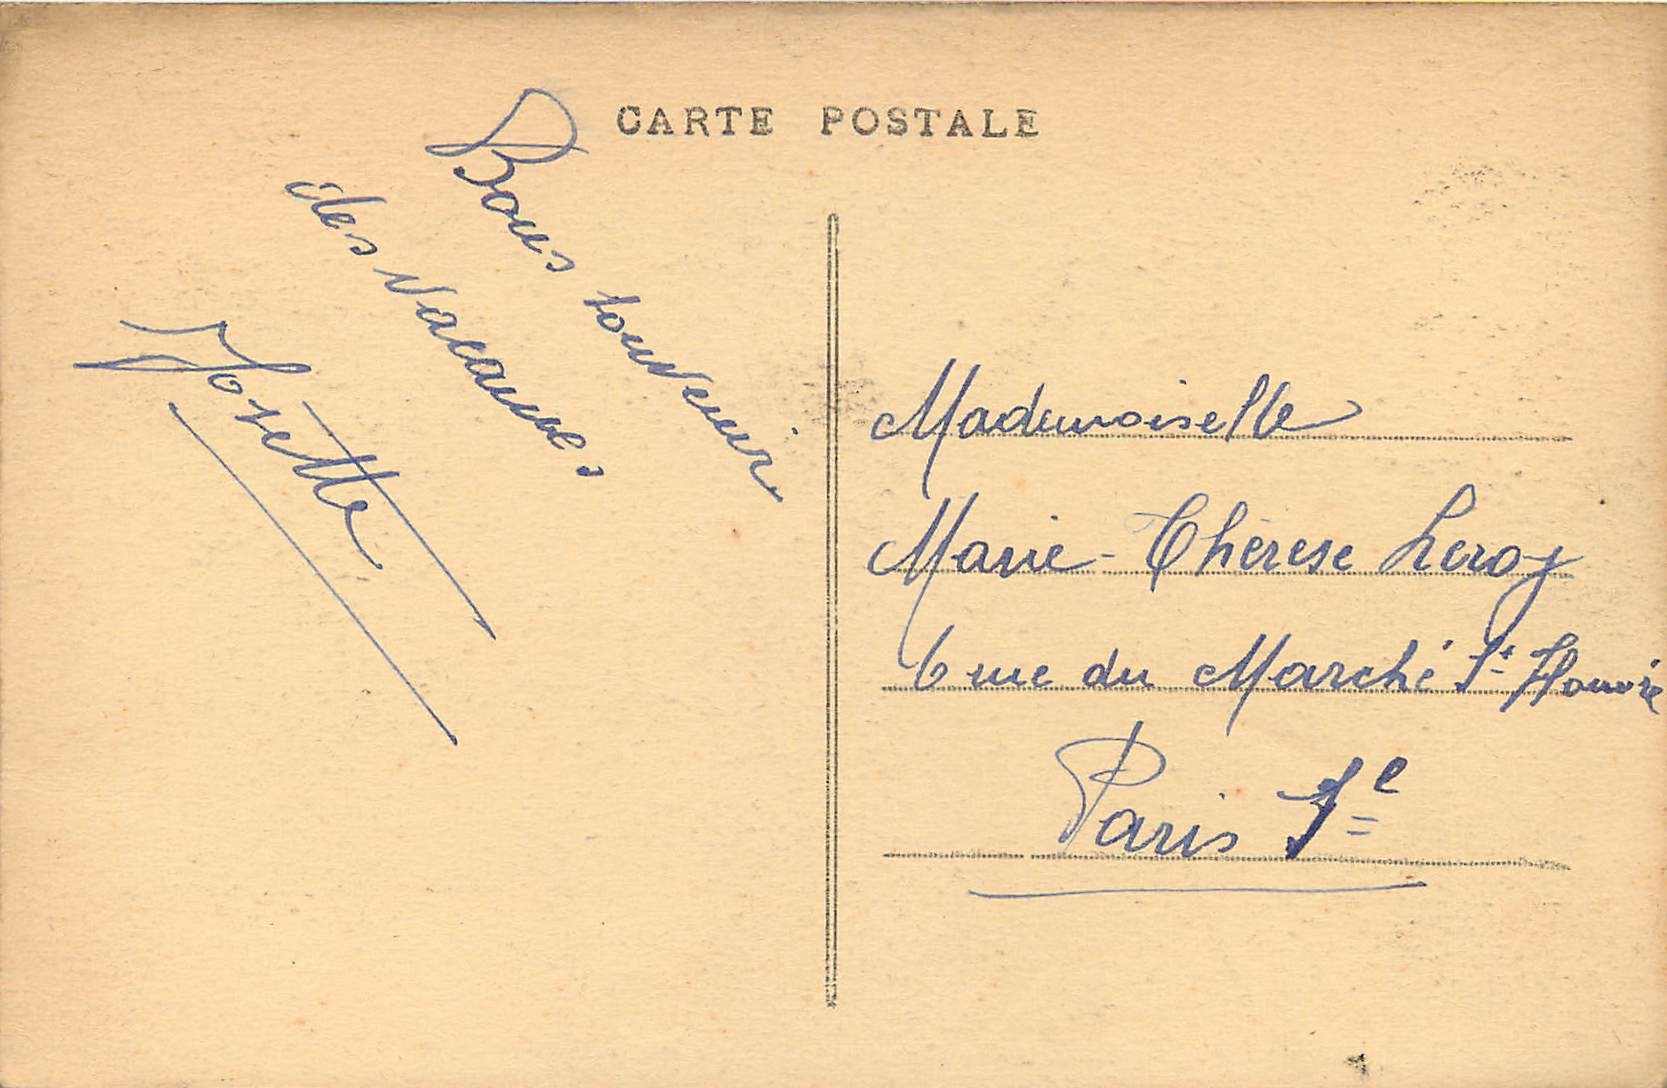 CARTE POSTALE
Bons souvenir
des vacances
Josette
Mademoiselle
Marie-Thérèse Leroy
6 rue du Marché St Honoré
Paris 1e